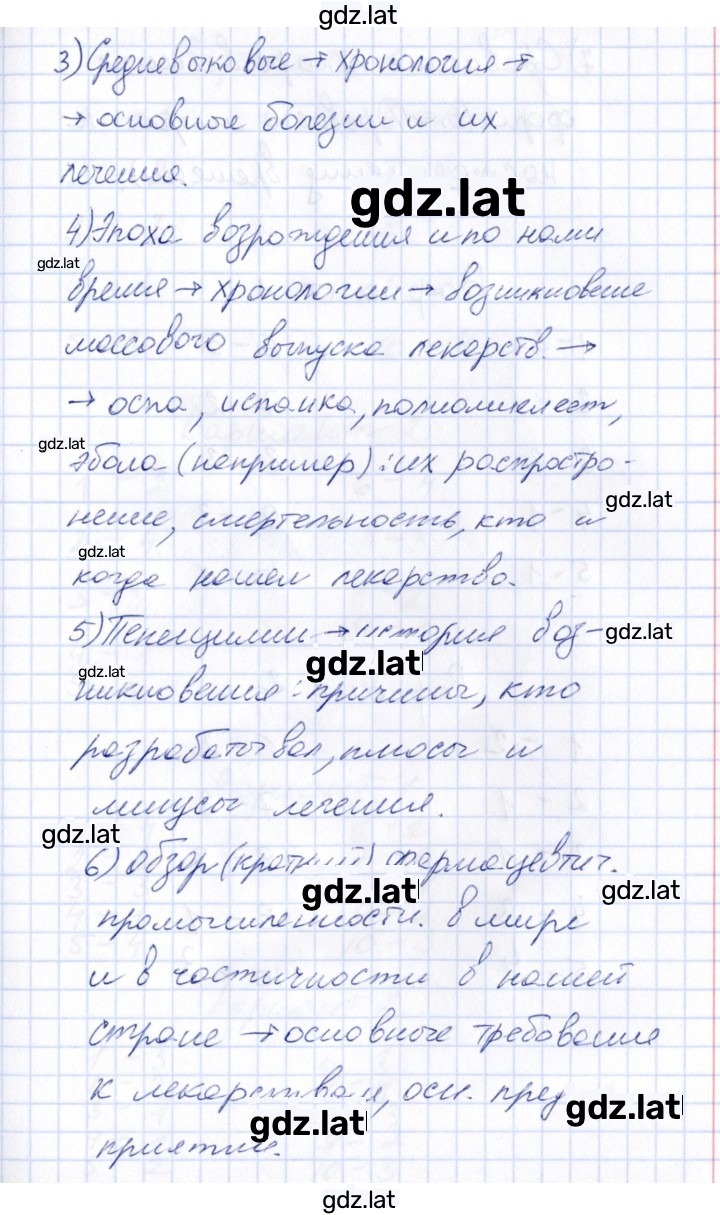 gdz.lat
3) Средневыковые → хронология →
→ основные болезни и их
лечения.
gdz.lat
4) Эпоха возрождения и по нами
gdz.lat
время → хронологии → возникновение
массового выпуска лекарств. →
→ оспа, испанка, полиомиелеит,
gdz.lat
эбола (например) : их распростро-
gdz.lat
нение, смертельность, кто и
gdz.lat
когда нашел лекарство.
5) Пенецилин → история воз-
gdz.lat
gdz.lat
gdz.lat
никновения : причины, кто
разрабатывал, плюсы и
минусы лечения.
gdz.lat
6) Обзор (краткий) фармацевтич.
gdz.lat
gdz.lat
промышленности. в мире
и в частичности в нашей
стране → основные требование
к лекарствам, осн. пред
gdz.lat
gdz.lat
приятии.
gdz.lat